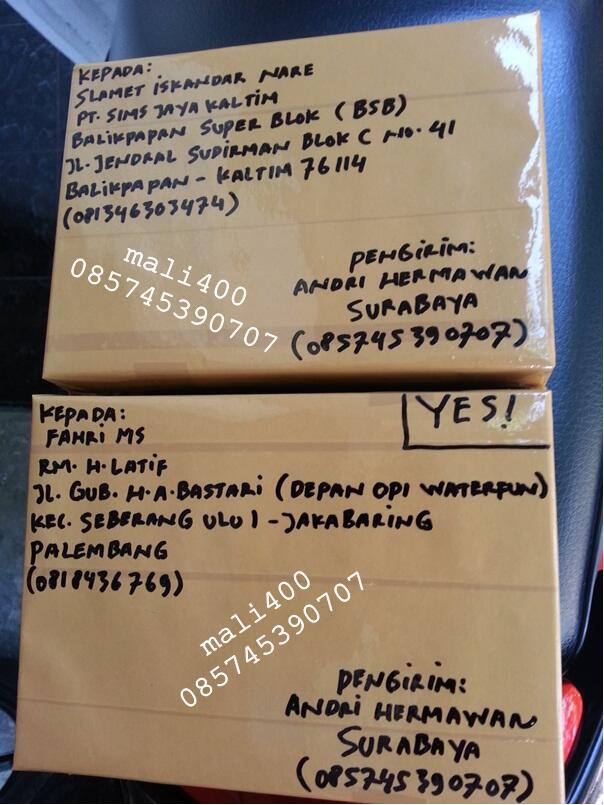 KEPADA:
SLAMET ISKANDAR NARE
PT. SIMS JAYA KALTIM
BALIKPAPAN SUPER BLOK (BSB)
JL. JENDRAL SUDIRMAN BLOK C NO. 41
BALIKPAPAN - KALTIM 76114
(081346303474)
mali400
085745390707
PENGIRIM:
ANDRI HERMAWAN
SURABAYA
(085745390707)
YES!
KEPADA:
FAHRI MS
RM. H. LATIF
JL. GUB. H.A. BASTARI (DEPAN OPI WATERFUN)
KEC. SEBERANG ULU 1 - JAKABARING
PALEMBANG
(0818436769)
mali400
085745390707
PENGIRIM:
ANDRI HERMAWAN
SURABAYA
(085745390707)